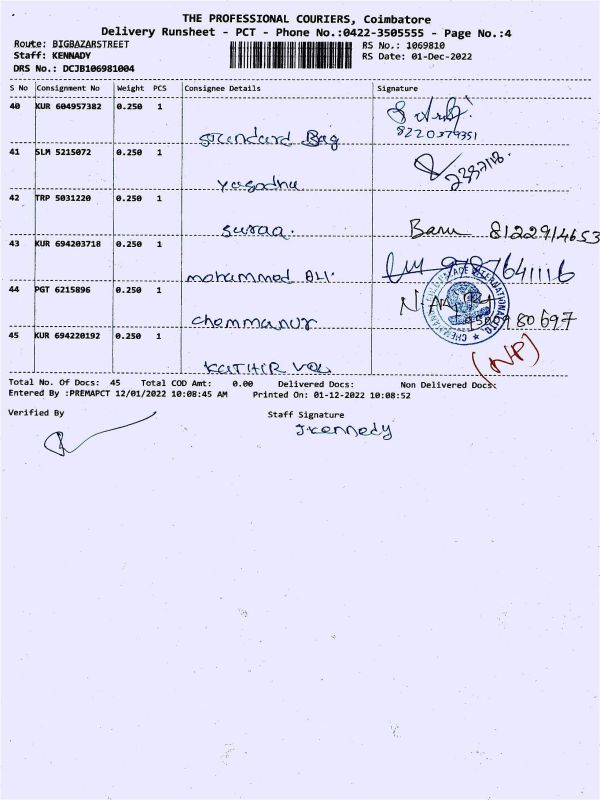 THE PROFESSIONAL COURIERS, Coimbatore
Delivery Runsheet - PCT - Phone No.:0422-3505555 - Page No.:4
Route: BIGBAZARSTREET RS No.: 1069810
Staff: KENNADY RS Date: 01-Dec-2022
DRS No.: DCJB106981004
S No Consignment No Weight PCS Consignee Details Signature
40 KUR 604957382 0.250 1
standard Bag 8220379351
41 SLM 5215072 0.250 1
yasodha
42 TRP 5031220 0.250 1
suraa. Banu 8122914653
43 KUR 694203718 0.250 1
mohammed ALI. 9787641116
44 PGT 6215896 0.250 1
chemmanur 9500980697
45 KUR 694220192 0.250 1
KATHIR VEL (NP)
Total No. Of Docs: 45 Total COD Amt: 0.00 Delivered Docs: Non Delivered Docs:
Entered By :PREMAPCT 12/01/2022 10:08:45 AM Printed On: 01-12-2022 10:08:52
Verified By Staff Signature
Jkennedy